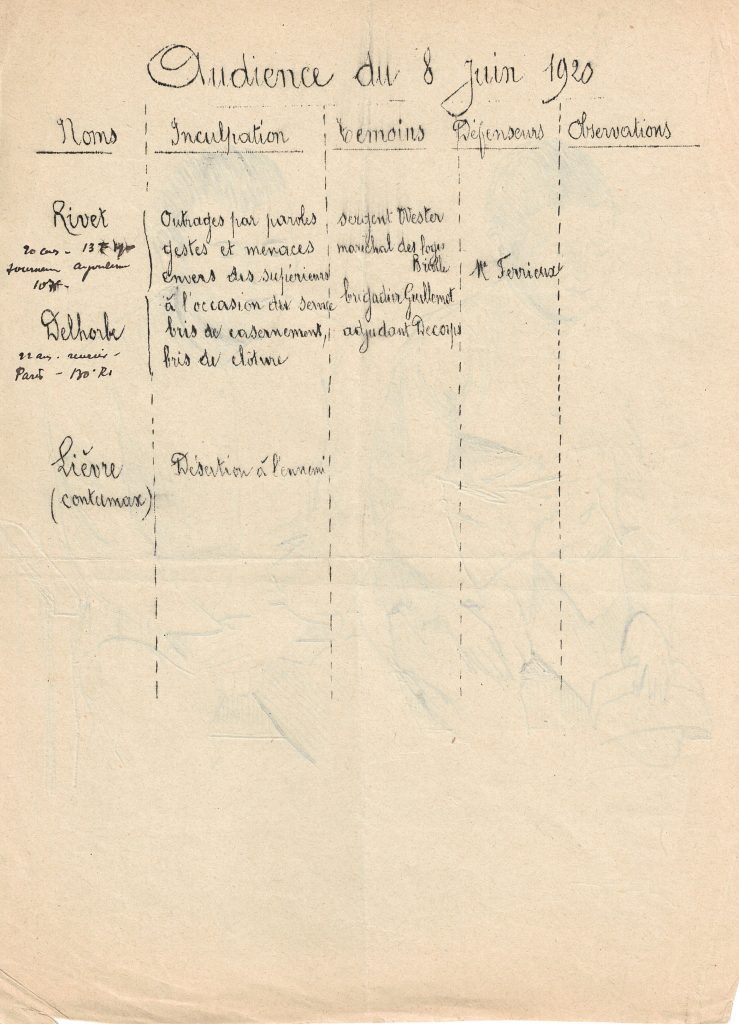 Audience du 8 Juin 1920
Noms Inculpation Témoins Défenseurs Observations
Rivet
20 ans - 13
tourneur
10
Delhorbe
22 ans.
Paris -
Outrages par paroles
gestes et menaces
envers des supérieurs
à l'occasion du service
bris de casernement,
bris de clôture
sergent Wester
maréchal des logis
brigadier Guillemot
adjudant Decorps
Me Ferrieux
Lièvre
(contumax)
Désertion à l'ennemi